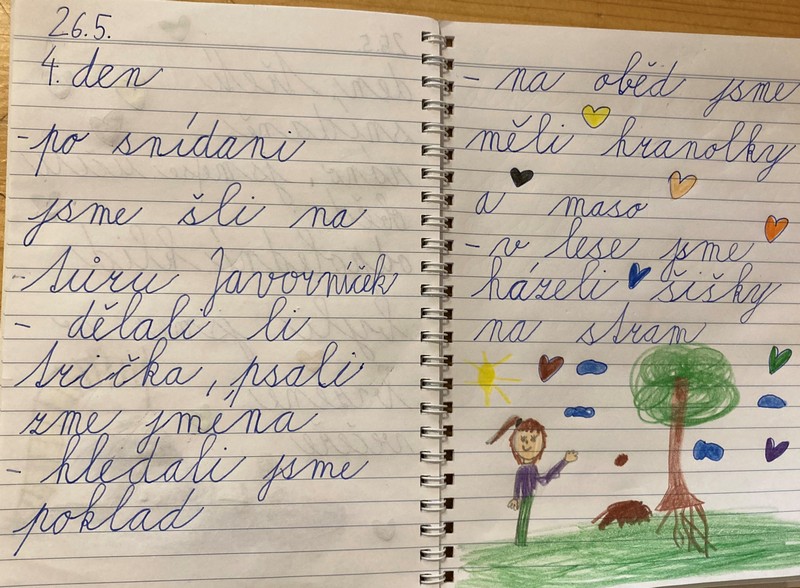 26.5.
4. den
- po snídani
jsme šli na
- túru Javorníček
- dělali li
trička, psali
zme jména
- hledali jsme
poklad
- na oběd jsme
měli hranolky
a maso
- v lese jsme
házeli šišky
na stram